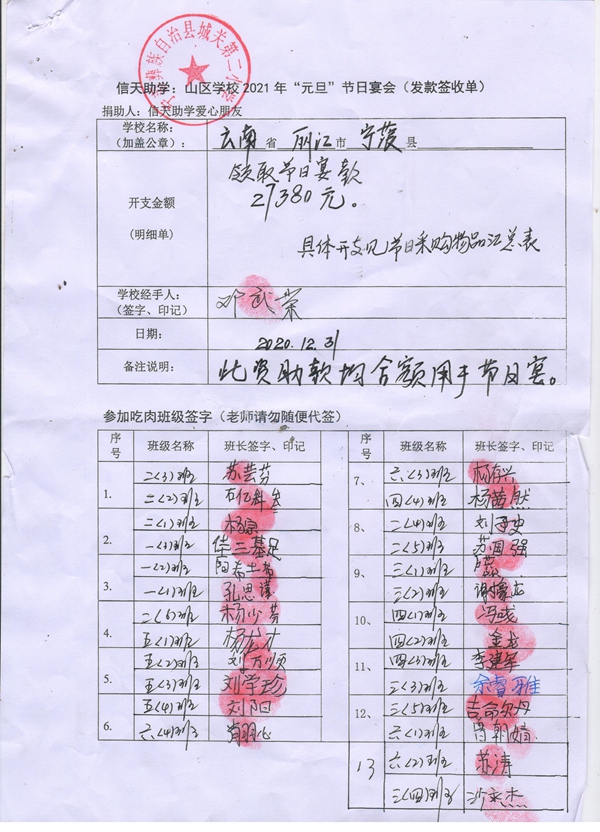 彝族自治县城关第二小学
信天助学：山区学校 2021 年 “元旦” 节日宴会（发款签收单）
捐助人：信天助学爱心朋友
学校名称：
（加盖公章）：
云南 省 丽江 市 宁蒗 县
领取节日宴款
27380元。
开支金额
(明细单)
具体开支见节日采购物品汇总表
学校经手人：
（签字、印记）
邓武荣
日期：
2020.12.31
备注说明：
此资助款均全额用于节日宴。
参加吃肉班级签字（老师请勿随便代签）
序号 班级名称 班长签字、印记
二(3)班 苏芸芬
1.
二(2)班
二(1)班 杨泉
2.
一(3)班
一(2)班
3.
一(1)班 孔思谨
二(6)班 杨少芬
4.
五(1)班 杨龙才
五(2)班 刘万顺
5.
五(3)班 刘学珍
五(4)班 刘阳
6.
六(4)班
序号 班级名称 班长签字、印记
7、
六(3)班 杨存兴
四(4)班 杨茜然
8、
二(4)班
二(5)班 苏国强
9、
三(1)班
三(2)班
10、
四(1)班
四(2)班 金龙
11、
四(3)班 李建军
三(3)班 余睿雅
12、
三(5)班 吉命尔丹
六(1)班
13
六(2)班 苏涛
三(四)班 沙永杰